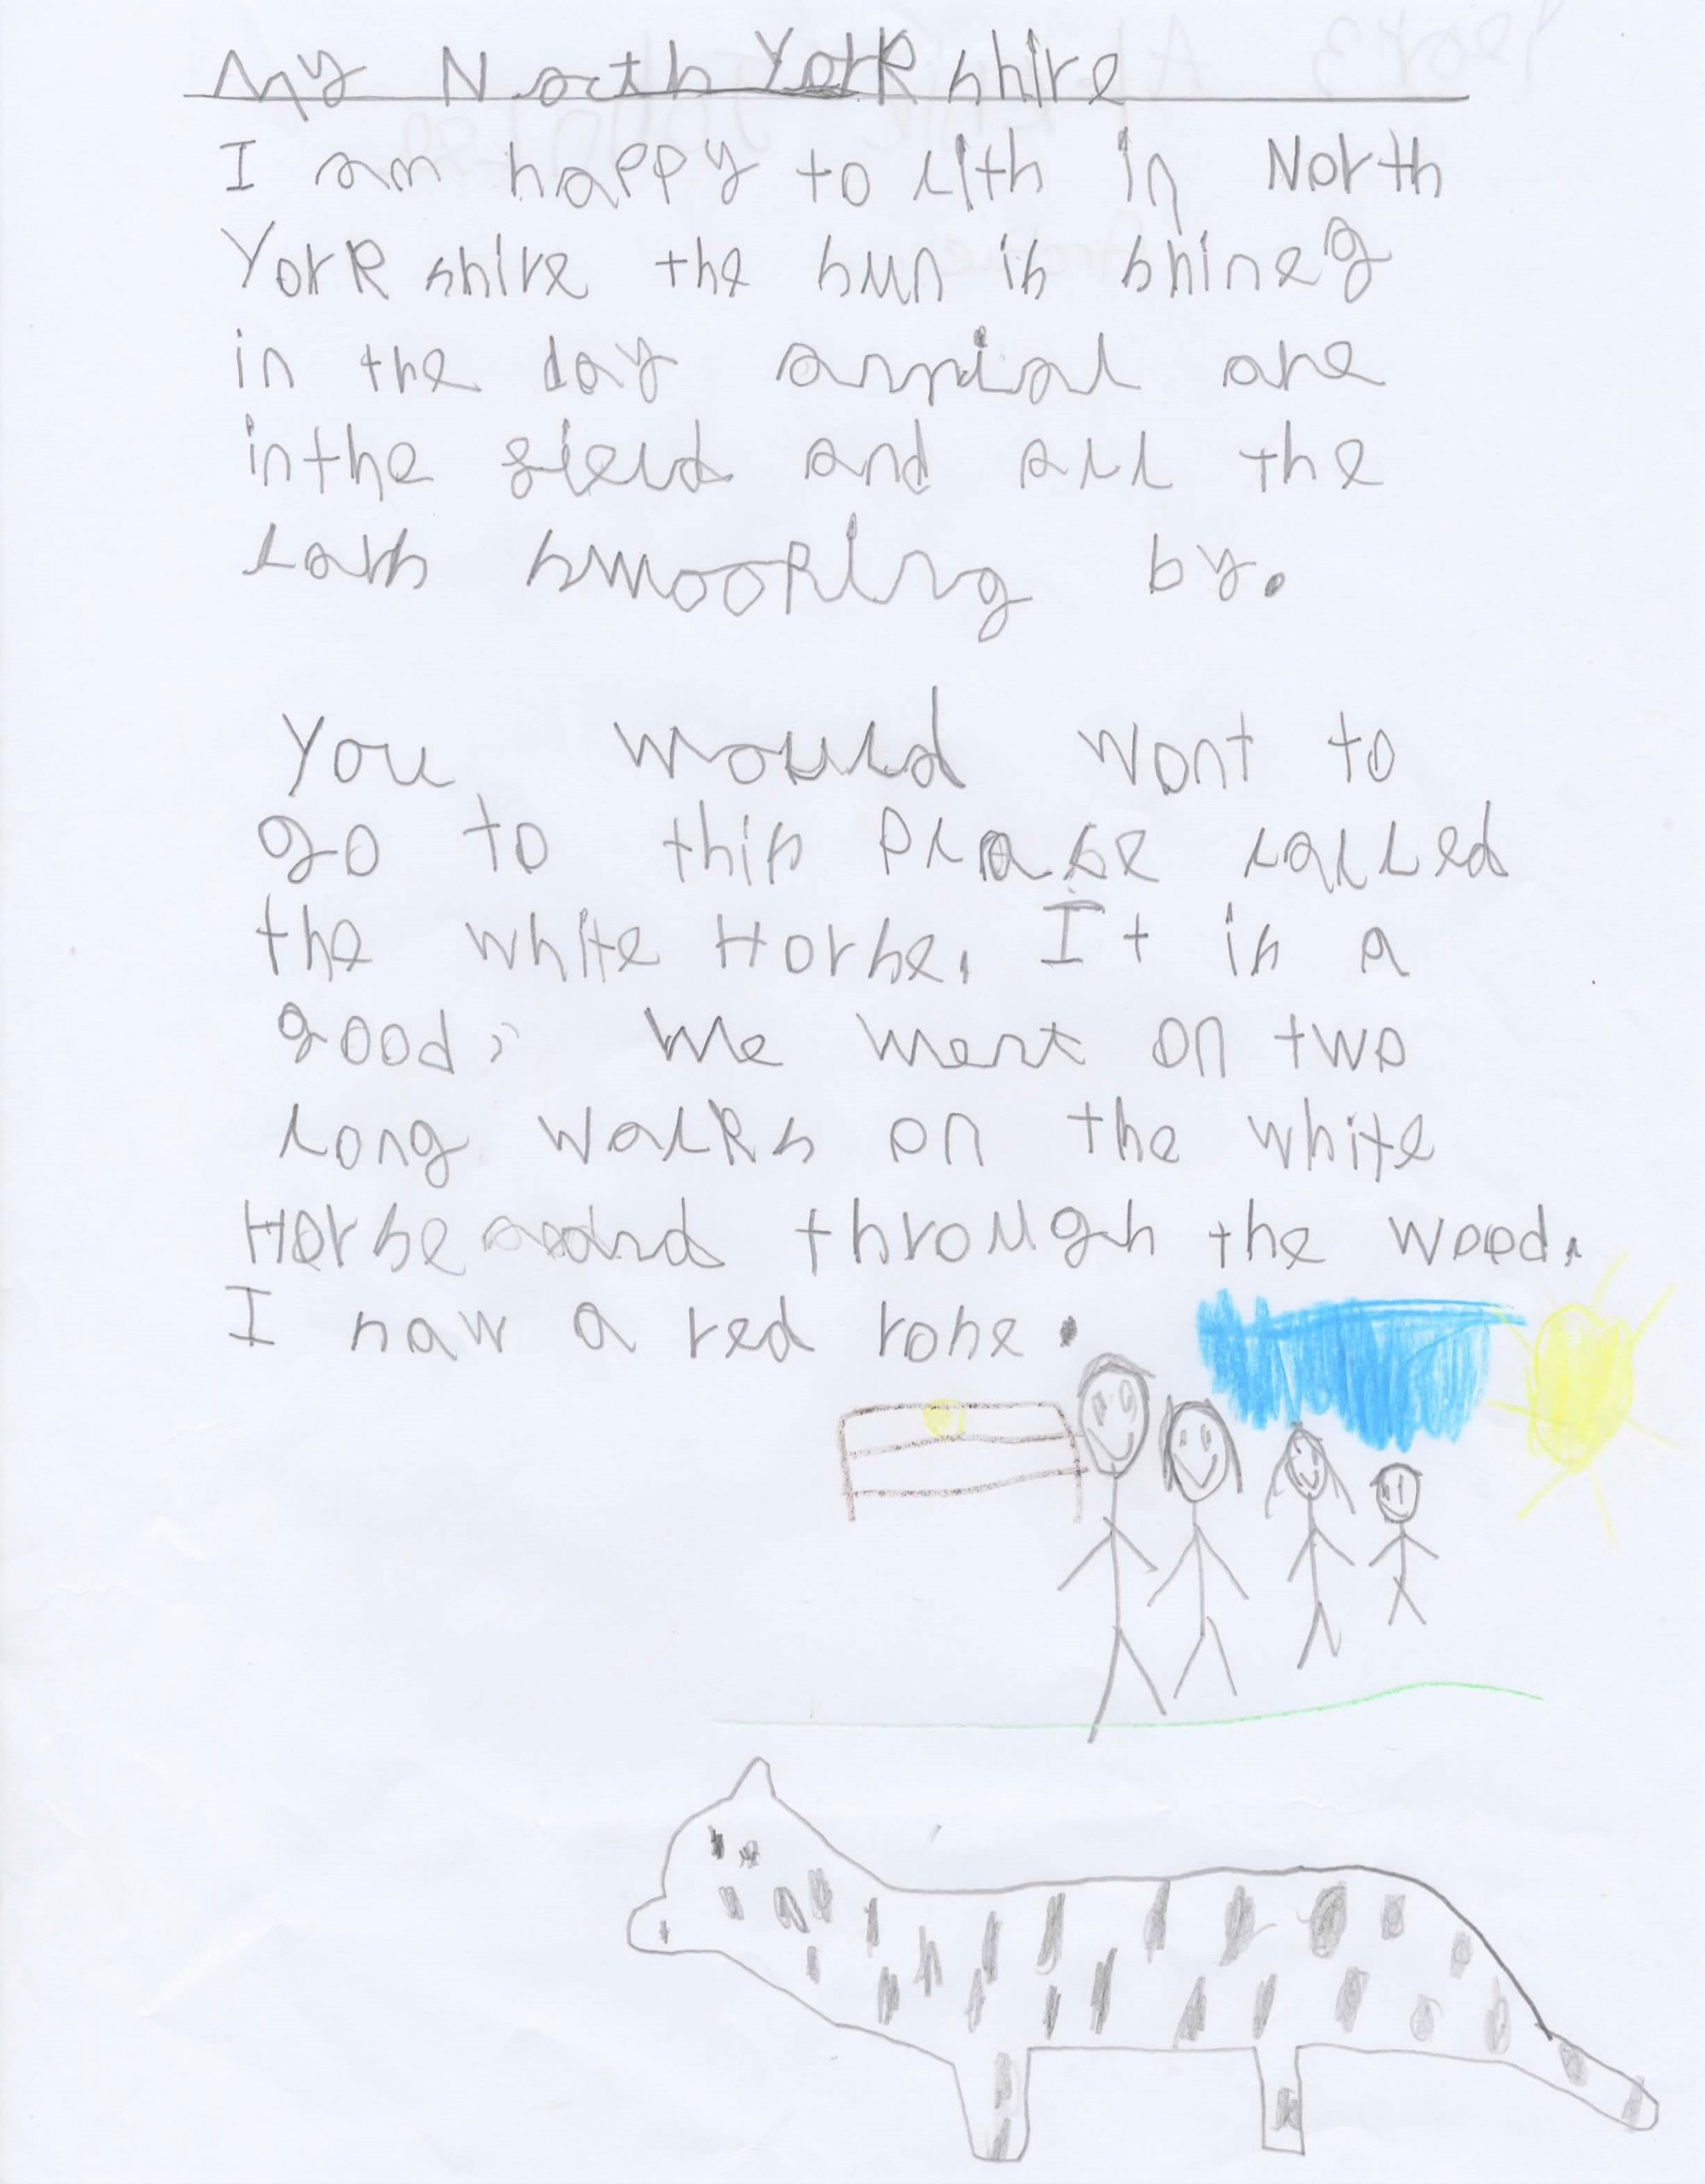 My North Yorkshire
I am happy to lith in North
Yorkshire the sun is shineg
in the day anmial are
inthe field and all the
cars swooping by.
You would wont to
go to this plase called
the white Horse. It is a
good. We went on two
long walks on the white
Horse and through the wood.
I saw a red rose.